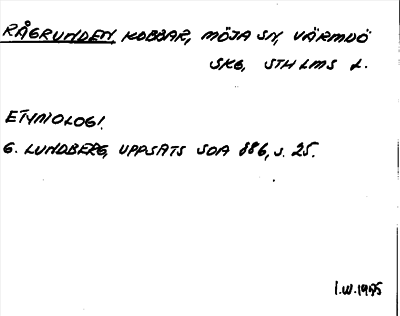 RÅGRUNDEN, KOBBAR, MÖJA SN, VÄRMDÖ
SKG, STHLMS L.
ETYMOLOGI.
G. LUNDBERG, UPPSATS SOA 886, s. 25.
I.W. 1975